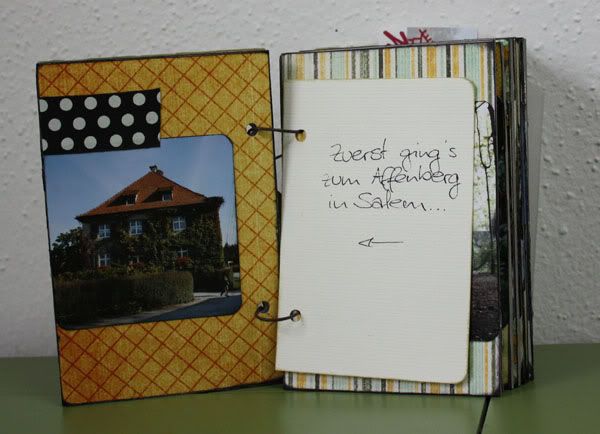 Zuerst ging's
zum Affenberg
in Salem...